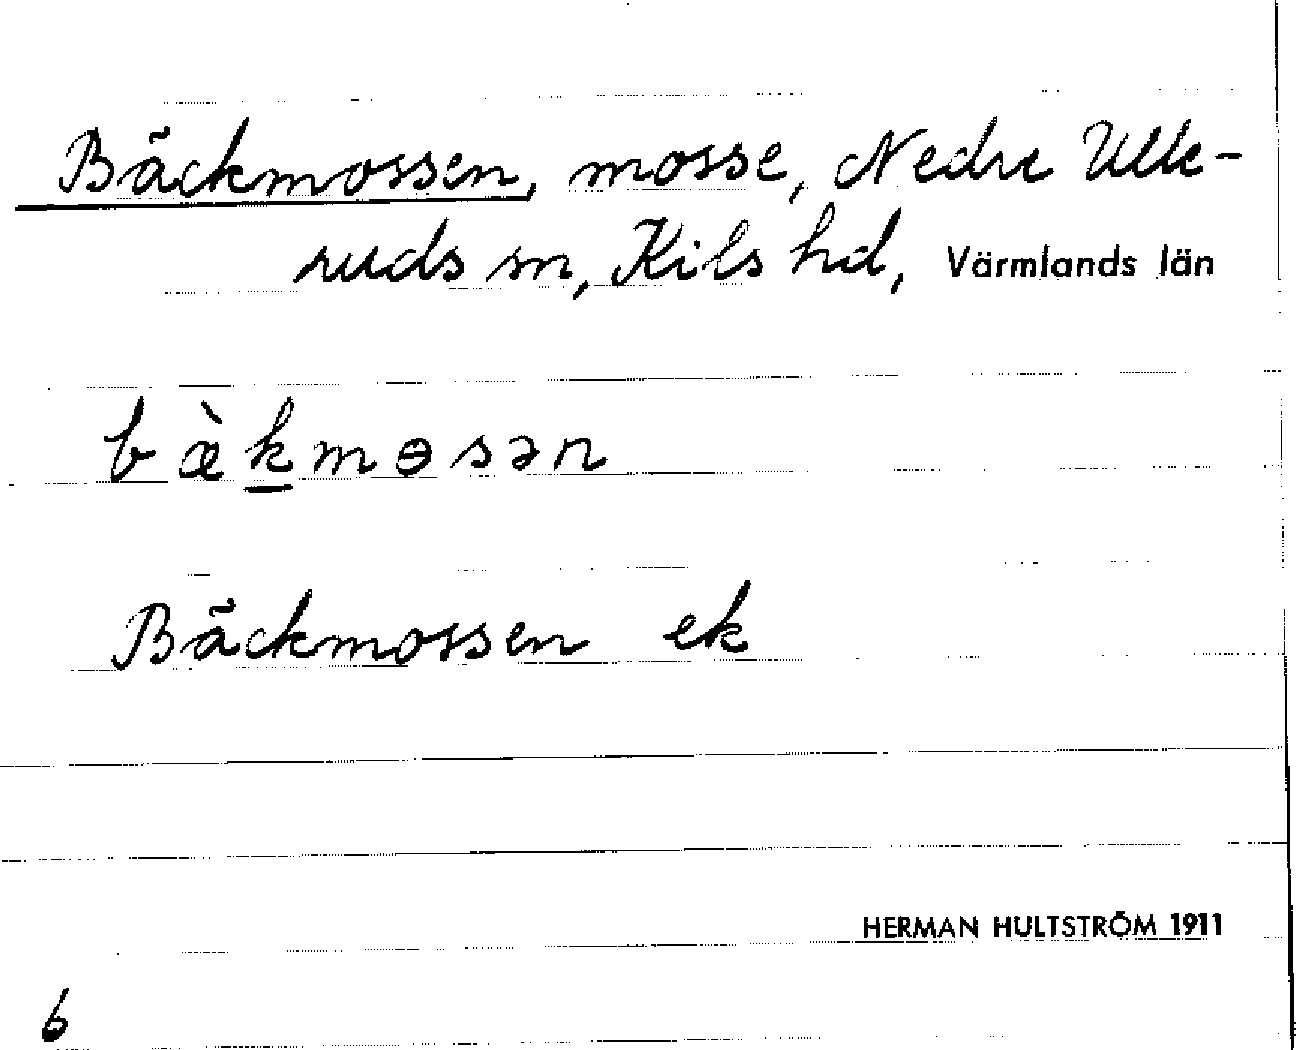 Bäckmossen, mosse, Nedre Ulle-
ruds sn, Kils hd, Värmlands län
bæ̀k̲mɵsən
Bäckmossen ek
HERMAN HULTSTRÖM 1911
6